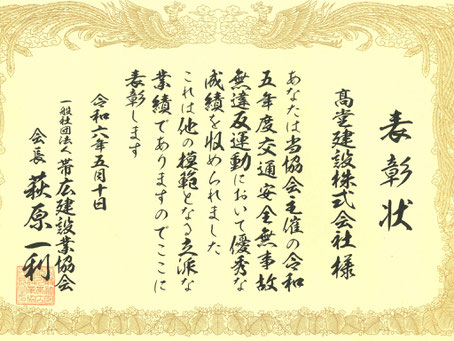 表彰状
髙堂建設株式会社様
あなたは当協会主催の令和
五年度交通安全無事故
無違反運動において優秀な
成績を収められました
これは他の模範となる立派な
業績でありますのでここに
表彰します
令和六年五月十日
一般社団法人 帯広建設業協会
会長 萩原一利